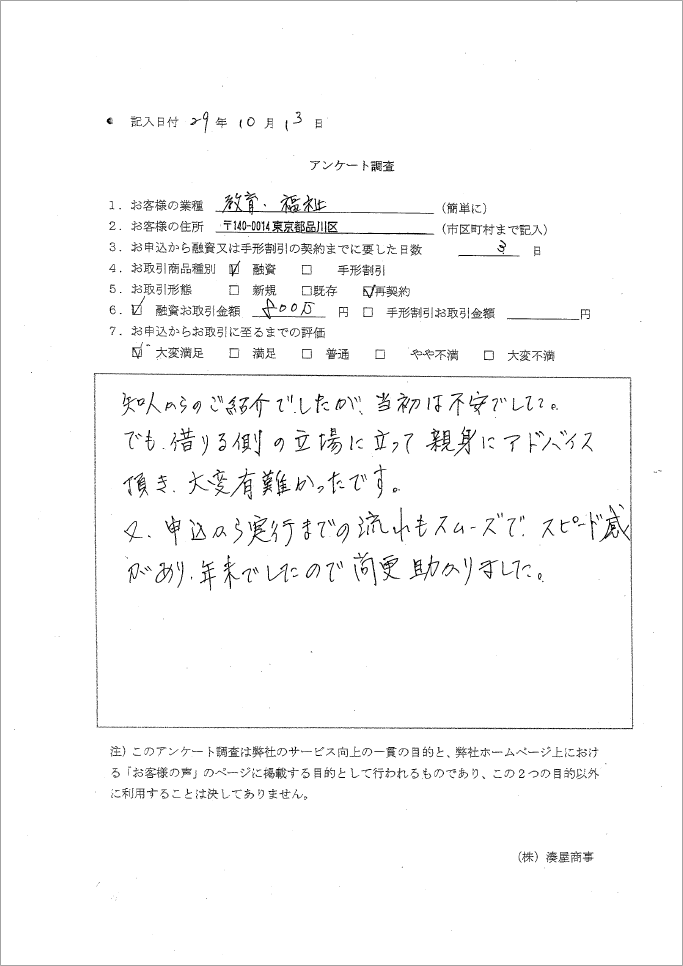 記入日付 29年 10月 13日
アンケート調査
1. お客様の業種 教育・福祉 (簡単に)
2. お客様の住所 〒140-0014東京都品川区 (市区町村まで記入)
3. お申込から融資又は手形割引の契約までに要した日数 3 日
4. お取引商品種別 ☑ 融資 □ 手形割引
5. お取引形態 □ 新規 □既存 ☑再契約
6. ☑ 融資お取引金額 800万 円 □ 手形割引お取引金額 円
7. お申込からお取引に至るまでの評価
☑ 大変満足 □ 満足 □ 普通 □ やや不満 □ 大変不満
知人からのご紹介でしたが、当初は不安でした。
でも、借りる側の立場に立って親身にアドバイス
頂き、大変有難かったです。
又、申込から実行までの流れもスムーズで、スピード感
があり、年末でしたので尚更助かりました。
注）このアンケート調査は弊社のサービス向上の一貫の目的と、弊社ホームページ上におけ
る「お客様の声」のページに掲載する目的として行われるものであり、この2つの目的以外
に利用することは決してありません。
（株）湊屋商事